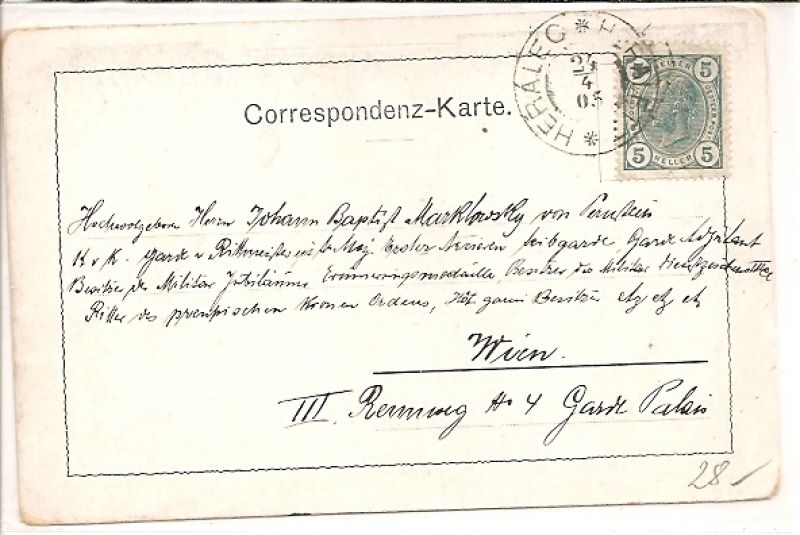 Correspondenz-Karte.
HERALEC * HERALEC *
24
4
05
5 5
5 HELLER 5
Hochwolgeboren Herrn Johann Baptist Marklowsky von Pernstein
K u K. Garde u Rittmeister Sr Maj. Erster Arcieren Leibgarde Garde Adjutant
Besitzer der Militär Jubiläums Erinnerungsmedaille, Besitzer des Militär
Ritter des preussischen Kronen Ordens, Besitzer etz etz etz
Wien.
III. Rennweg No 4 Garde Palais
28